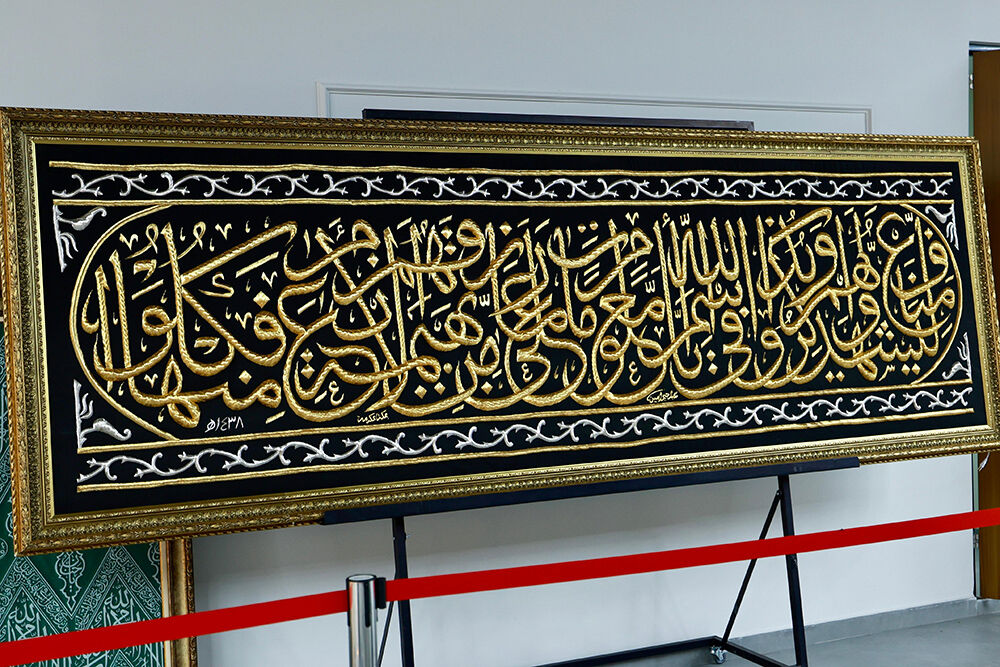 ليشهدوا منافع لهم ويذكروا اسم الله في أيام معلومات على ما رزقهم من بهيمة الأنعام فكلوا منها
مكة المكرمة
١٤٣٨هـ